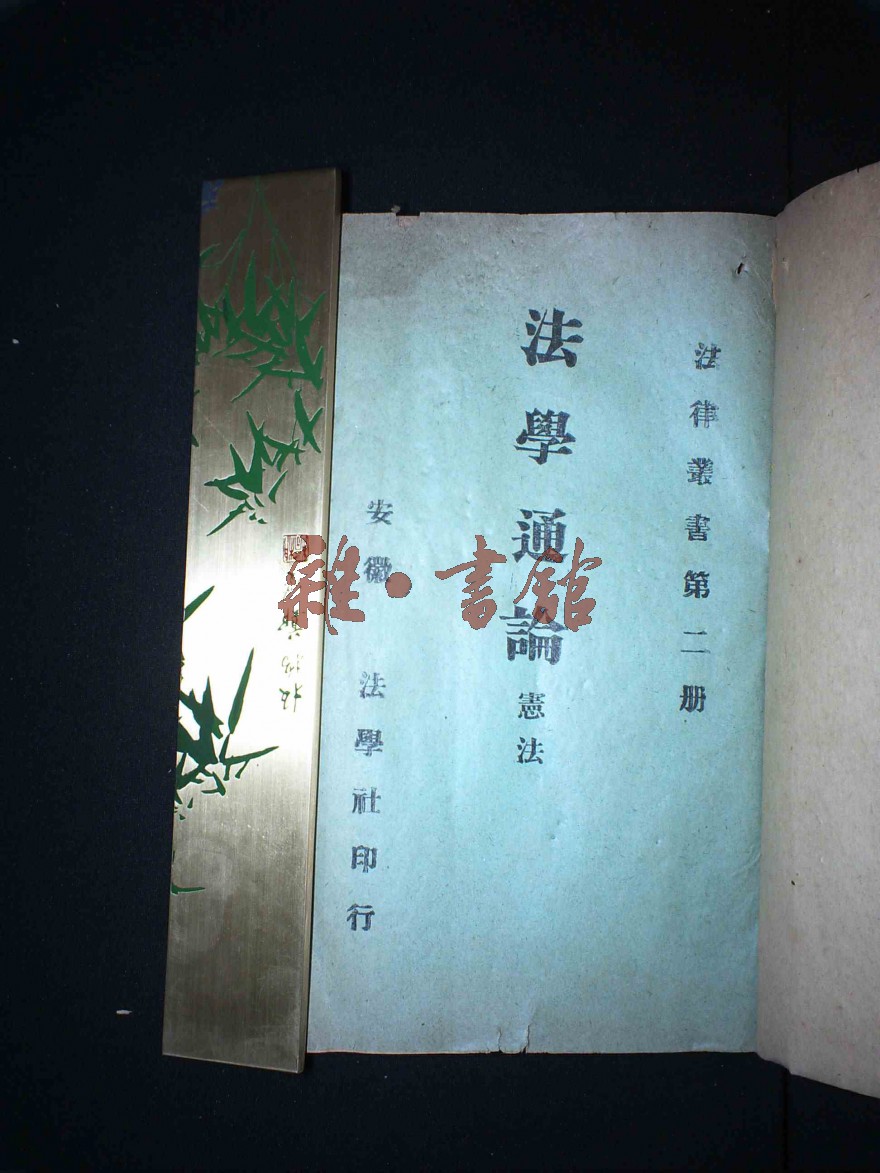 法律叢書第二册
法學通論 憲法
安徽 法學社印行
雜·書館